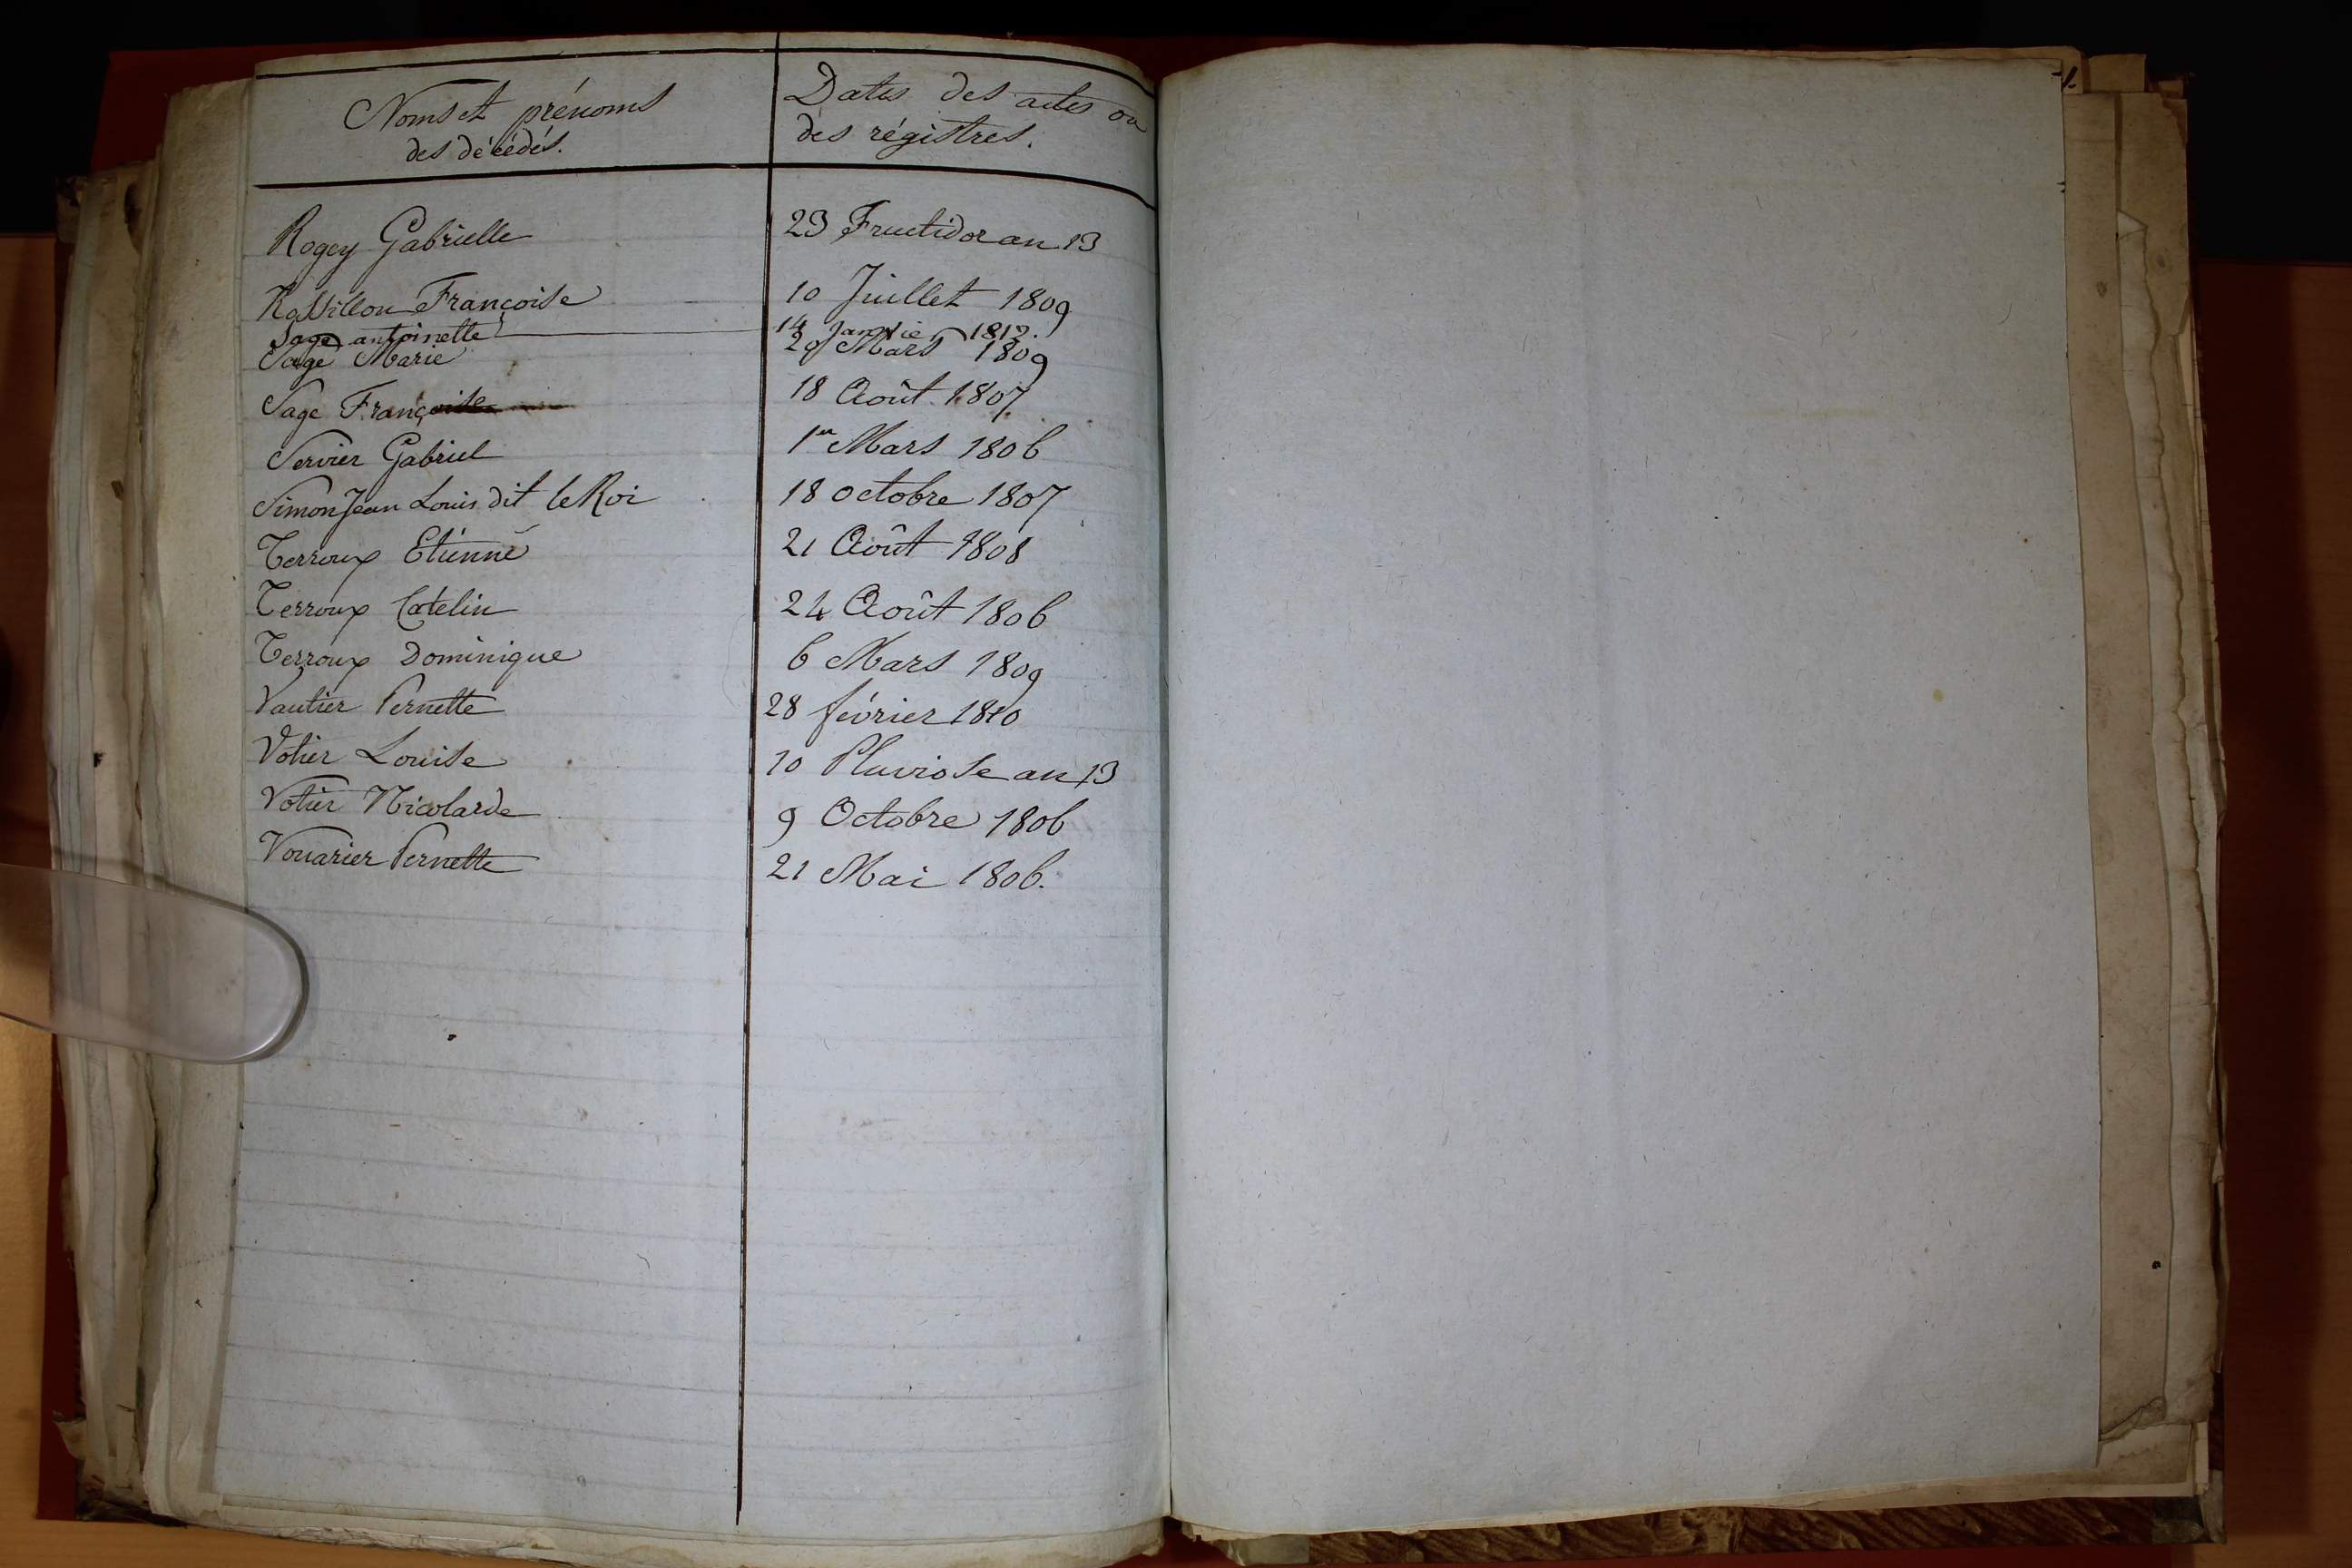 Noms et prénoms
des décédés.
Dates des actes ou
des régistres.
Rogey Gabrielle 23 Fructidor an 13
Rassillon Françoise 10 Juillet 1809
Sage antoinette 14 Janvier 1812.
Sage Marie 29 Mars 1809
Sage Françoise 18 Août 1807
Servier Gabriel 1er Mars 1806
Simon Jean Louis dit le Roi 18 octobre 1807
Terroux Etienne 21 Août 1808
Terroux Catelin 24 Août 1806
Terroux Dominique 6 Mars 1809
Vautier Pernette 28 février 1810
Votier Louise 10 Pluviose an 13
Votier Nicolarde 9 Octobre 1806
Vouarier Pernette 21 Mai 1806.